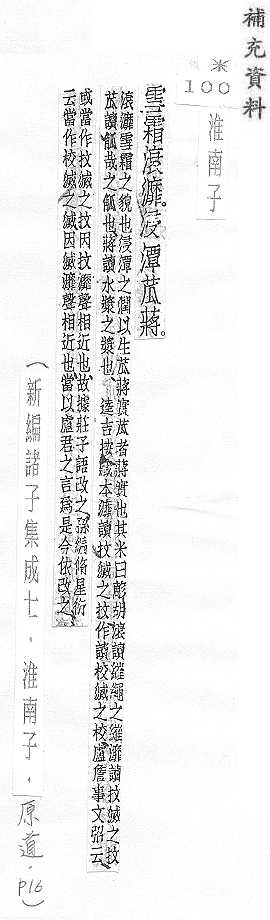 補充資料
*
100
淮南子
雪霜滾灖。浸潭苽蔣。
滾灖雪霜之貌也浸潭之潤以生苽蔣實苽者蔣實也其米曰彫胡滾讀維繩之維灖讀抆滅之抆
苽讀觚哉之觚也蔣讀水漿之漿也 逵吉按藏本灖讀抆滅之抆作讀校滅之校盧詹事文弨云
或當作抆滅之抆因抆灖聲相近也故據莊子語改之孫編脩星衍
云當作校滅之滅因滅灖聲相近也當以盧君之言爲是今依改之
(新編諸子集成七.淮南子.原道.P16)